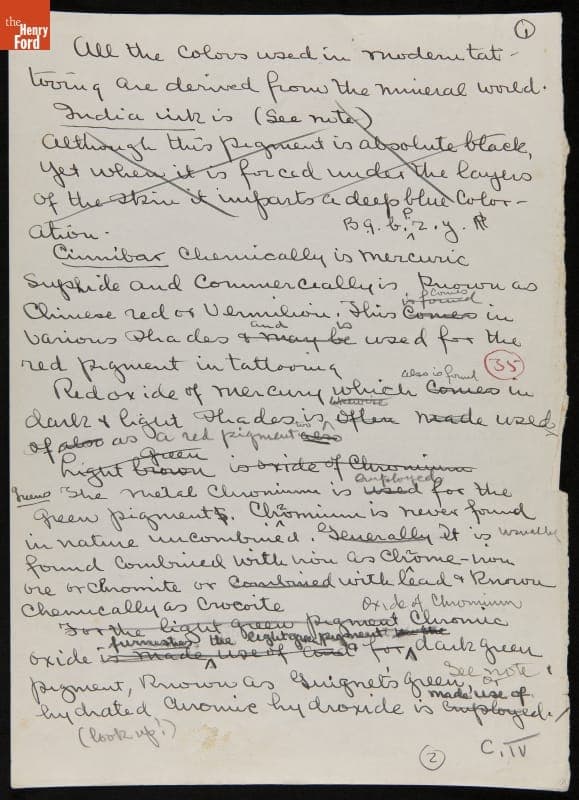 the Henry Ford
①
All the colors used in modern tat-
tooing are derived from the mineral world.
India ink is (See note)
Although this pigment is absolute black,
yet when it is forced under the layers
of the skin it imparts a deep blue color-
ation.
B g. b. P. r. y.
Cinnibar chemically is mercuric
Suphide and commercially is known as
comes
is found
Chinese red or Vermilion. This comes in
and is
various shades & may be used for the
red pigment in tattooing
35
also is found
Red oxide of mercury which comes in
likewise
dark & light shades is often made used
of also as a red pigment too also
green
Light brown is oxide of Chromium
employed
Greens The metal Chromium is used for the
green pigments. Chromium is never found
in nature uncombined. Generally It is usually
found combined with iron as chrome-iron
ore or chromite or combined with lead & known
chemically as crocoite
oxide of Chromium
For the light green pigment Chromic
furnishes the light green pigment
oxide is made use of and for dark green
See note
pigment, known as Guignet's green or
made use of
hydrated chromic hydroxide is employed.
(look up!)
②
C. IV